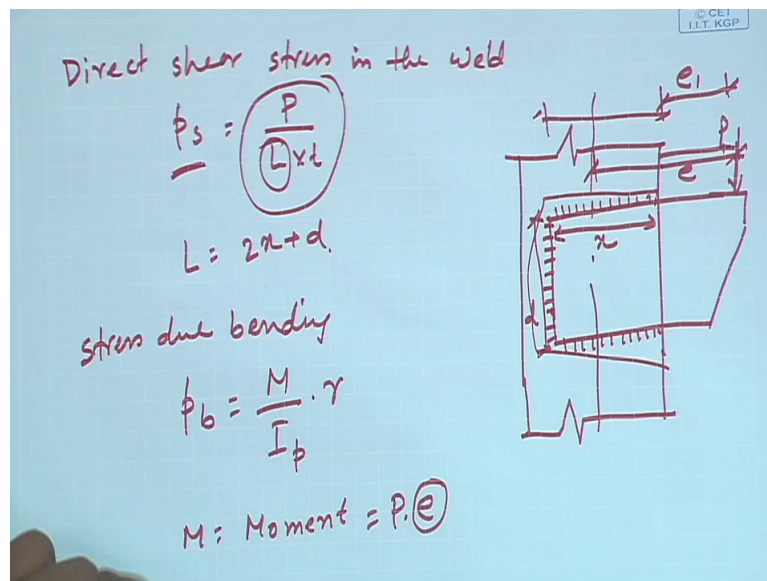 © CET
I.I.T. KGP
Direct shear stress in the weld
ps = P / L x t
L = 2x + d.
stress due bending
pb = M / Ip . r
M = Moment = P. e
e1
P
e
x
d